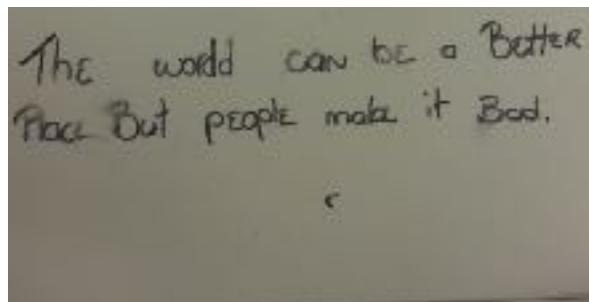 The world can be a Better
Place But people make it Bad.